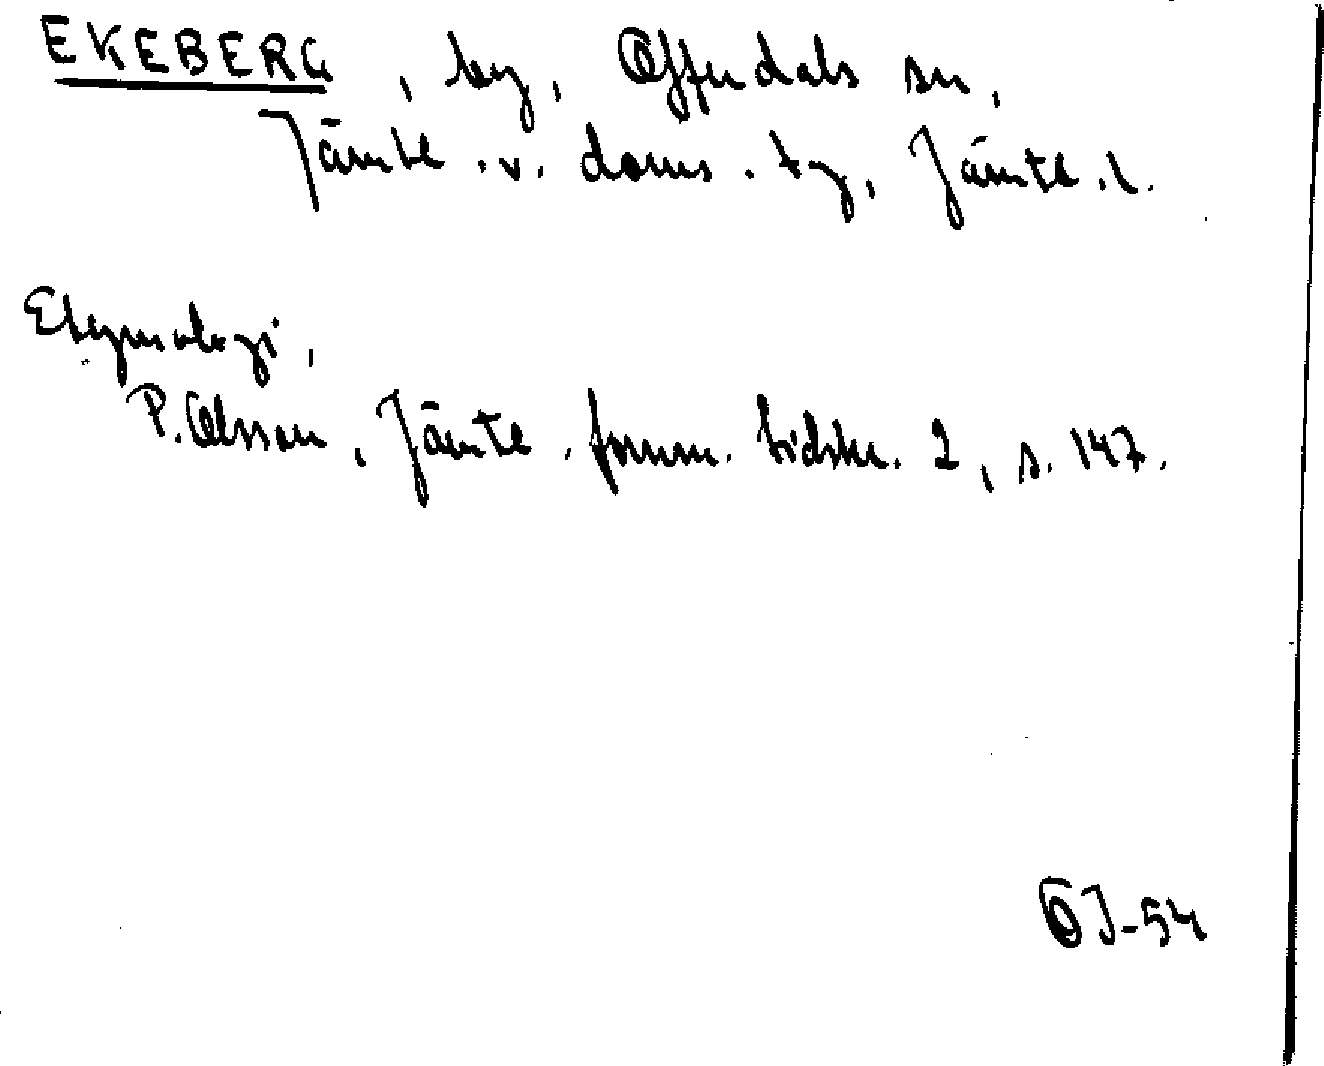 EKEBERG, by, Offerdals sn,
Jämtl. v. doms. tg, Jämtl. l.
Etymologi,
P. Olsson, Jämtl. fornm. tidskr. 2, s. 147.
ÖJ-54